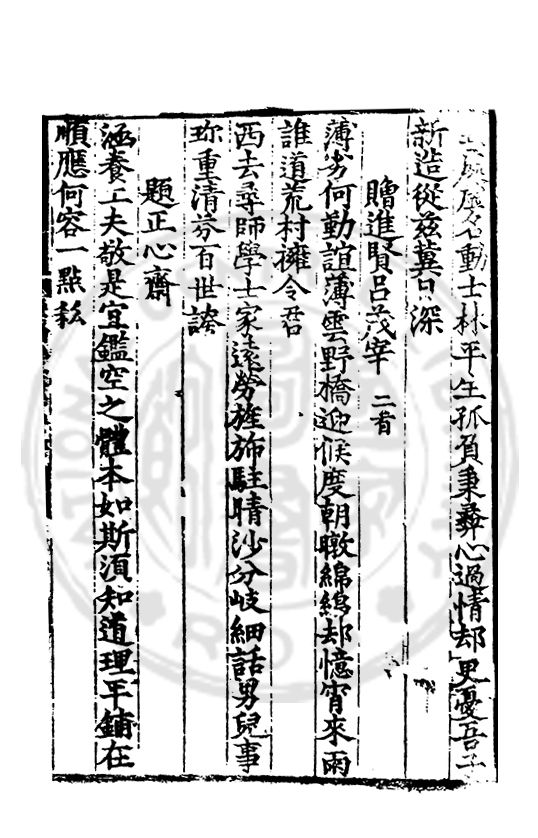 動士林平生孤負秉彝心過情却更憂吾子
新造從茲冀日深
贈進賢呂茂宰 二首
薄劣何勤誼薄雲野橋迎候度朝暾綿綿却憶宵來雨
誰道荒村擁令君
西去尋師學士家遠勞旌斾駐晴沙分岐細話男兒事
珍重清芬百世誇
題正心齋
涵養工夫敬是宜鑑空之體本如斯須知道理平鋪在
順應何容一點私